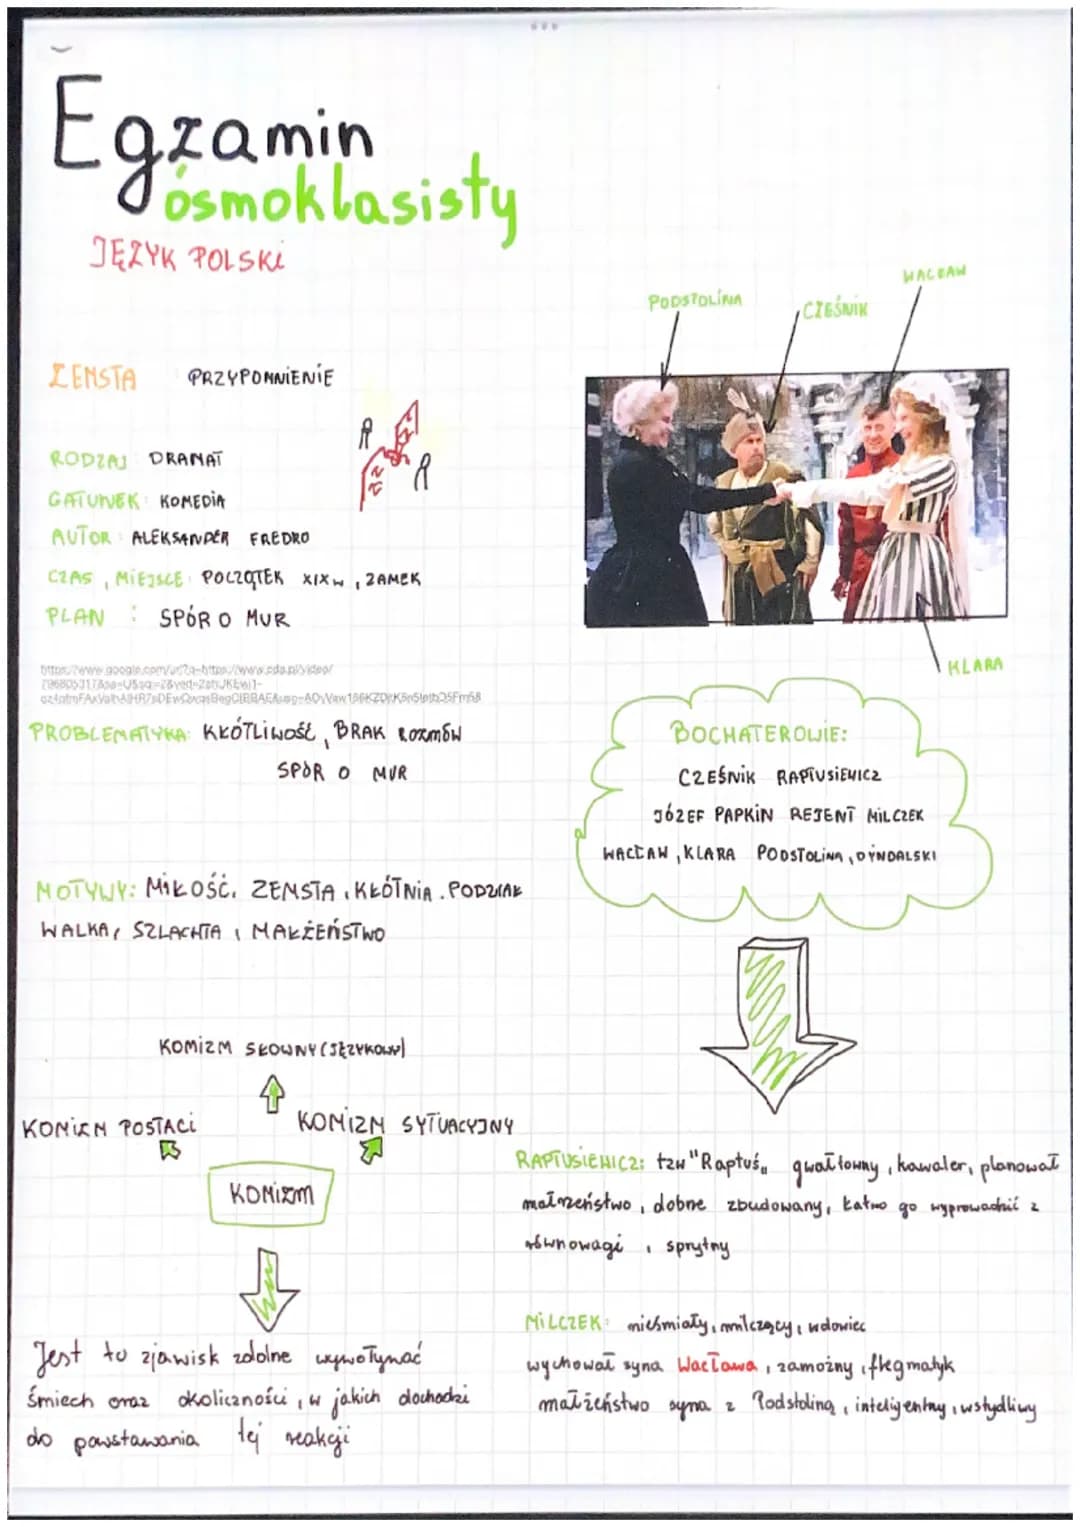 Egzamin
ósmoklasisty
JĘZYK POLSKI
PODSTOLINA
CZEŚNIK
WACŁAW
ZEMSTA PRZYPOMNIENIE
RODZAJ DRAMAT
GATUNEK: KOMEDIA
AUTOR: ALEKSANDER FREDRO
CZAS, MIEJSCE: POCZĄTEK XIXw, ZAMEK
PLAN : SPÓR O MUR
KLARA
PROBLEMATYKA: KŁÓTLIWOŚĆ, BRAK ROZMÓW
SPÓR O MUR
BOCHATEROWIE:
CZEŚNIK RAPTUSIEWICZ
JÓZEF PAPKIN REJENT MILCZEK
WACŁAW, KLARA PODSTOLINA, DYNDALSKI
MOTYWY: MIŁOŚĆ, ZEMSTA, KŁÓTNIA. PODZIAŁ
WALKA, SZLACHTA, MAŁŻEŃSTWO
KOMIZM SŁOWNY (JĘZYKOWY)
KOMIZM POSTACI
KOMIZM SYTUACYJNY
KOMIZM
Jest to zjawisk zdolne wywoływać
śmiech oraz okoliczności, w jakich dochodzi
do powstawania tej reakcji
RAPTUSIEWICZ: tzw "Raptuś„ gwałtowny, kawaler, planował
małrzeństwo, dobne zbudowany, łatwo go wyprowadzić z
równowagi, sprytny
MILCZEK: nieśmiały, milczący, wdowiec
wychował syna Wacława, zamożny, flegmatyk
małżeństwo syna z Podstoliną, inteligentny, wstydliwy